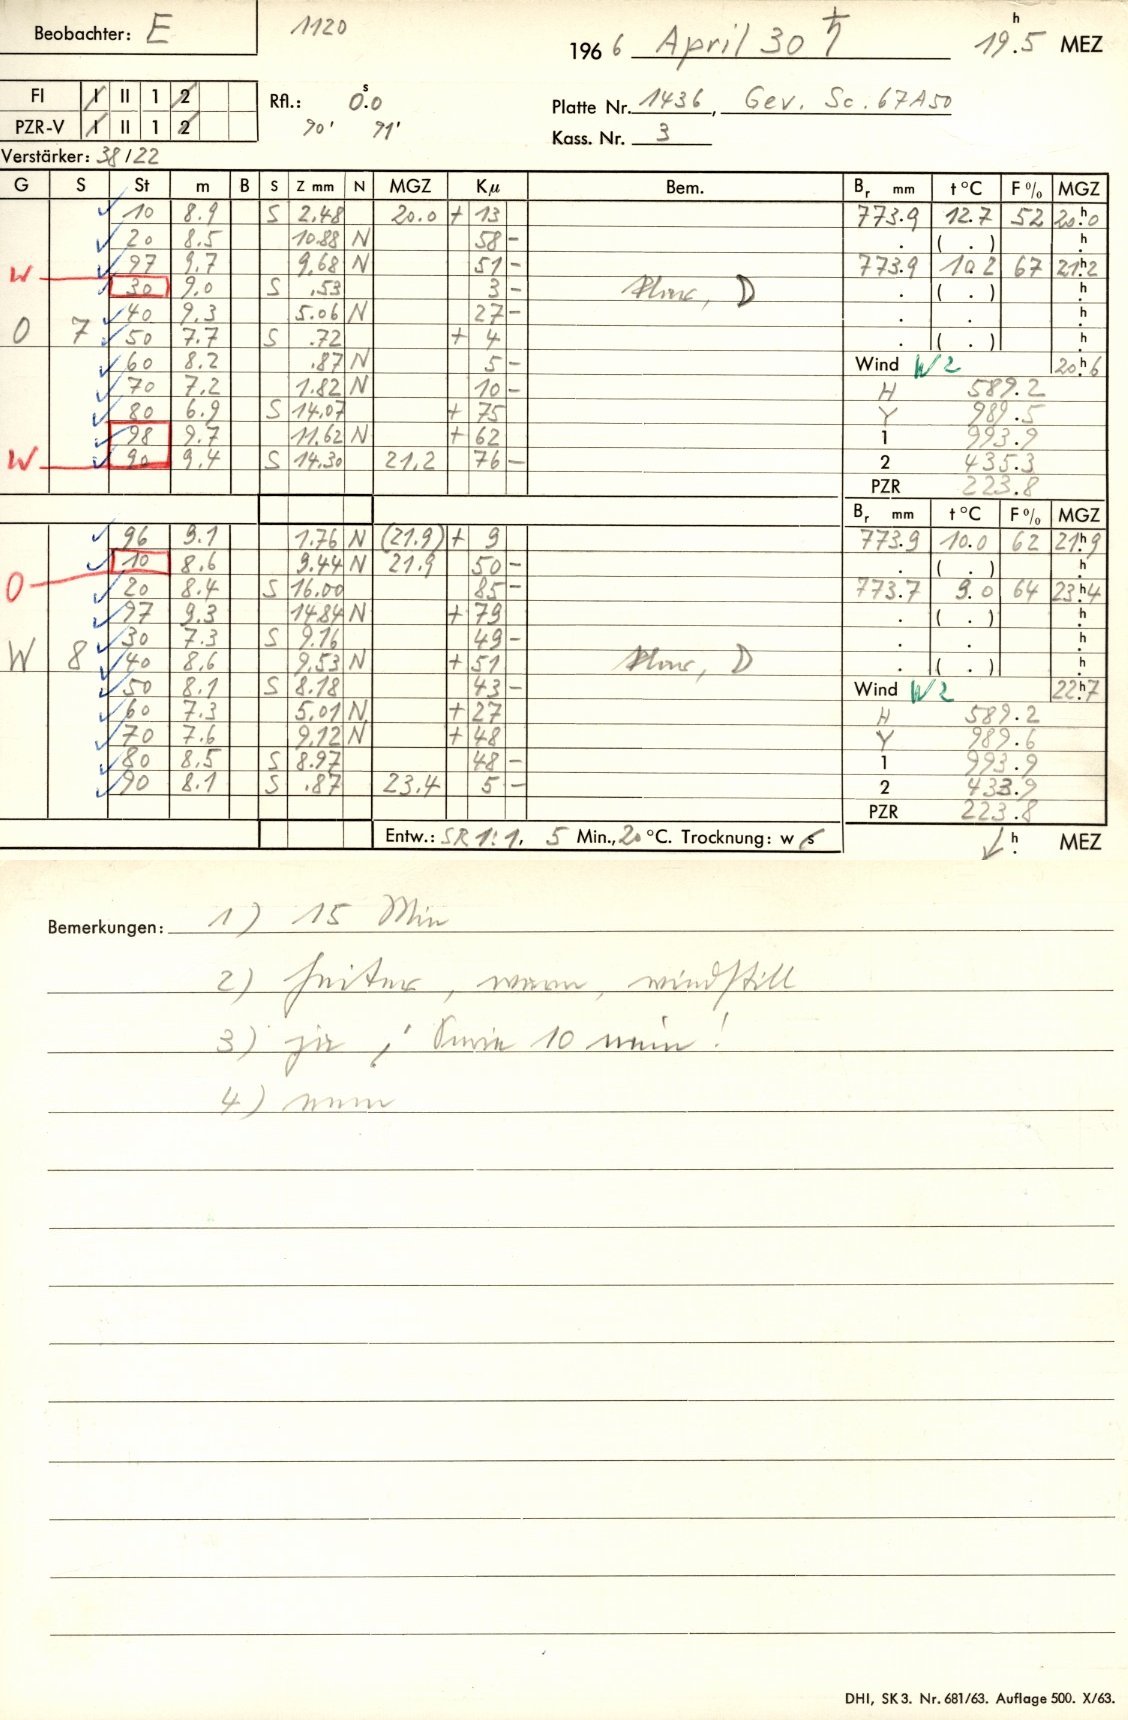 Beobachter: E
1120
1966 April 30 ♄ 19h.5 MEZ
FI I II 1 2
PZR-V I II 1 2
Rfl.: 0s.0
90' 91'
Platte Nr. 1436, Gev. Sc. 67A50
Kass. Nr. 3
Verstärker: 38/22
G S St m B S Z mm N MGZ Kμ Bem. Br mm t °C F % MGZ
10 8.9 S 2.48 20.0 + 13 773.9 12.7 52 20h.0
20 8.5 10.88 N 58 - . ( . ) h
97 9.7 9.68 N 51 - 773.9 10.2 67 21h.2
W 30 9.0 S .53 3 - D . ( . ) h
40 9.3 5.06 N 27 - . . h
O 7 50 7.7 S .72 + 4 . ( . ) h
60 8.2 .87 N 5 - Wind W 2 20h.6
70 7.2 1.82 N 10 - H 589.2
80 6.9 S 14.07 + 75 Y 989.5
98 9.7 11.62 N + 62 1 993.9
W 90 9.4 S 14.30 21.2 76 - 2 435.3
PZR 223.8
Br mm t °C F % MGZ
96 9.1 1.76 N (21.9) + 9 773.9 10.0 62 21h.9
10 8.6 9.44 N 21.9 50 - . ( . ) h
O 20 8.4 S 16.00 85 - 773.7 9.0 64 23h.4
97 9.3 14.84 N + 79 . ( . ) h
30 7.3 S 9.16 49 - . . h
W 8 40 8.6 9.53 N + 51 D . ( . ) h
50 8.1 S 8.18 43 - Wind W 2 22h.7
60 7.3 5.01 N + 27 H 589.2
70 7.6 9.12 N + 48 Y 989.6
80 8.5 S 8.97 48 - 1 993.9
90 8.1 S .87 23.4 5 - 2 433.9
PZR 223.8
Entw.: SR 1:1, 5 Min., 20 °C. Trocknung: w s h. MEZ
Bemerkungen: 1) 15 Min
2) heiter, warm, windstill
3) 10 nein!
4) nein
DHI, SK 3. Nr. 681/63. Auflage 500. X/63.